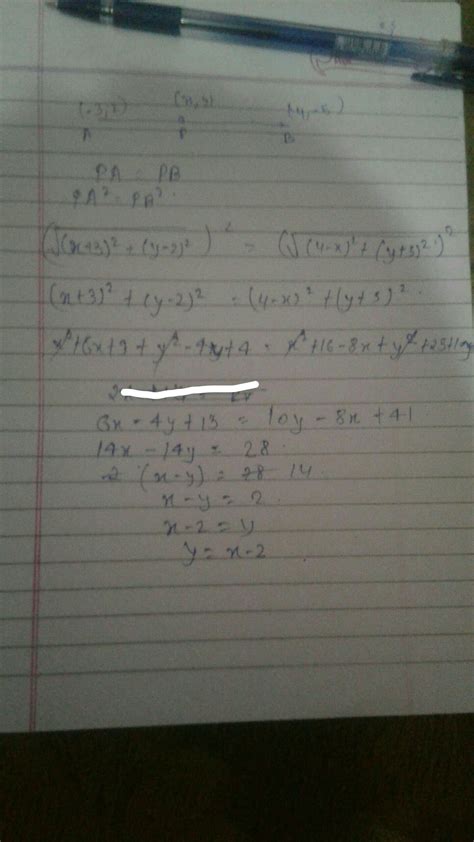 (-3,2) (x,y) (4,-5)
A P B
PA = PB
PA² = PB²
(√(x+3)² + (y-2)²)² = (√(4-x)² + (y+5)²)²
(x+3)² + (y-2)² = (4-x)² + (y+5)²
x²+6x+9 + y²-4y+4 = x²+16-8x+y²+25+10y
6x-4y+13 = 10y-8x+41
14x-14y = 28
(x-y) = 28 14
x-y = 2
x-2 = y
y = x-2